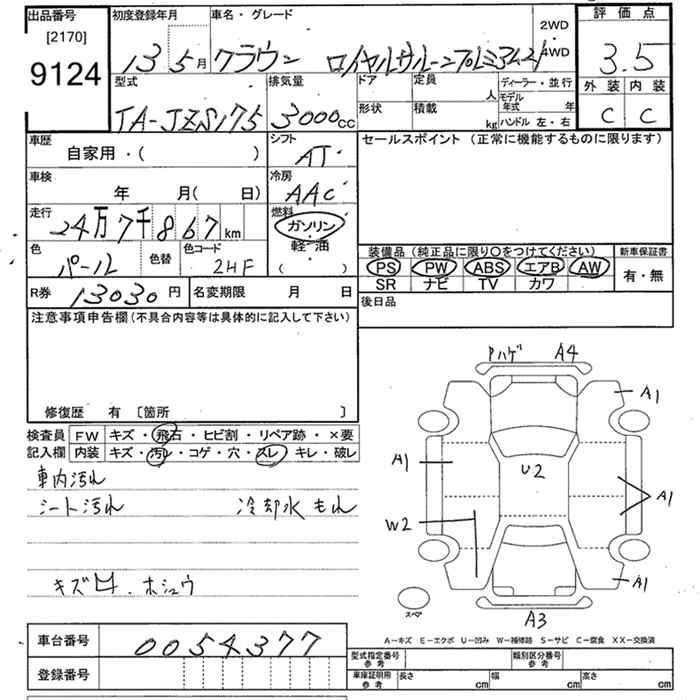 出品番号
[2170]
9124
初度登録年月
13 5月
車名・グレード
クラウン ロイヤルサルーン
2WD
4WD
評価点
3.5
外装 内装
C C
型式
TA-JZS175
排気量
3000cc
ドア 定員 人
形状 積載 kg
ディーラー・並行
モデル年式 年
ハンドル 左・右
車歴
自家用・( )
シフト
AT
セールスポイント (正常に機能するものに限ります)
車検
年 月( 日)
冷房
AAC
走行
24万7千867km
燃料
ガソリン・
軽・油
( )
色
パール
色替
色コード
2HF
装備品 (純正品に限り○をつけてください)
PS PW ABS エアB AW
SR ナビ TV カワ
新車保証書
有・無
R券 13030円
名変期限 月 日
後日品
注意事項申告欄(不具合内容等は具体的に記入して下さい)
修復歴 有 [箇所 ]
検査員記入欄
FW キズ・飛石・ヒビ割・リペア跡・×要
内装 キズ・汚レ・コゲ・穴・スレ・キレ・破レ
車内汚れ
シート汚れ 冷却水もれ
キズ凹、ホシュウ
Pハゲ A4
A1
A1
U2
A1
W2
A1
スペア
A3
A-キズ E-エクボ U-凹み W-補修跡 S-サビ C-腐食 XX-交換済
車台番号 0054377
登録番号
型式指定番号 参考
類別区分番号 参考
車庫証明用 参考 長さ cm 幅 cm 高さ cm